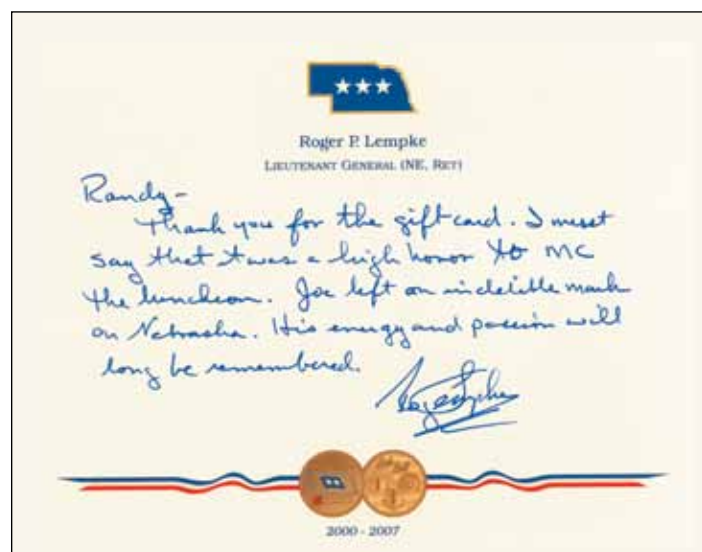 Roger P. Lempke
LIEUTENANT GENERAL (NE, RET)
Randy-
Thank you for the gift card. I must
say that it was a high honor to MC
the luncheon. Joe left an indelible mark
on Nebraska. His energy and passion will
long be remembered.
2000 - 2007